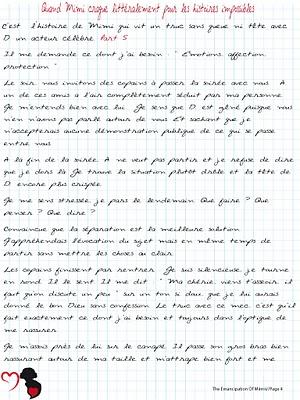 Quand Mimi craque littéralement pour les histoires impossibles
C'est l'histoire de Mimi qui vit un truc sans queue ni tête avec
D un acteur célèbre Part 5
Il me demande ce dont j'ai besoin : " Emotions, affection,
protection "
Le soir nous invitons des copains à passer la soirée avec nous. A
un de ces amis a l'air complètement séduit par ma personne.
Je m'entends bien avec lui. Je sens que D est gêné puisque nous
n'en n'avons pas parlé autour de nous. Et sachant que je
n'accepterais aucune démonstration publique de ce qui se passe
entre nous
A la fin de la soirée A ne veut pas partir et je refuse de dire
que je dors là. Je trouve la situation plutôt drôle et la tête de
D encore plus crispée
Je me sens stressée, je pars le lendemain. Que faire ? Que
penser ? Que dire ?
Convaincue que la séparation est la meilleure solution.
J'appréhendais l'évocation du sujet mais en même temps de
partir sans mettre les choses au clair
Les copains finissent par rentrer. Je suis silencieuse, je tourne
en rond. Il le sent. Il me dit : " Ma chérie, viens t'asseoir, il
faut qu'on discute un peu " sur un ton si doux que je lui aurais
donné le bon Dieu sans confession. Le truc avec ce mec, c'est qu'il
fait exactement ce dont j'ai besoin et toujours dans l'optique de
me rassurer
Je m'assois près de lui sur le canapé. Il passe son gros bras bien
rassurant autour de ma taille et m'attrape bien fort et me
The Emancipation Of Mimi//Page 4